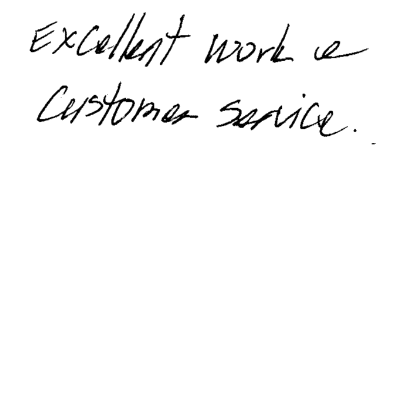 Excellent work &
Customer service.